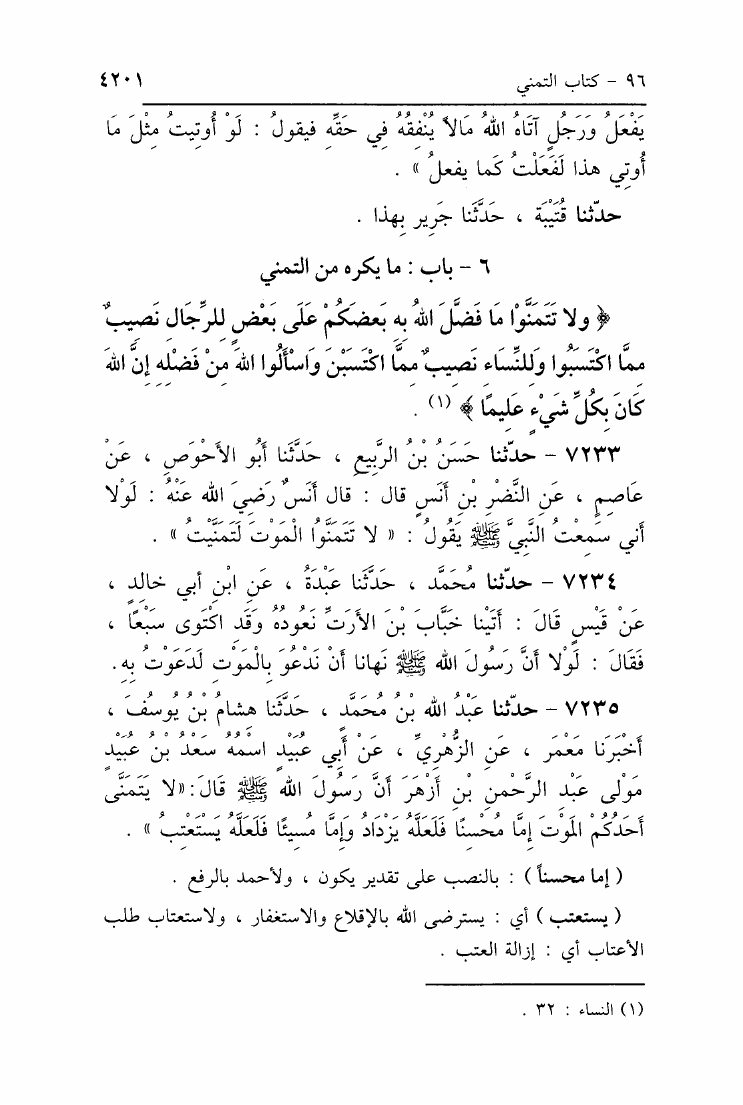 ٩٦ - كتاب التمني
٤٢٠١
يَفْعَلُ وَرَجُلٍ آتَاهُ اللهُ مَالاً يُنْفِقُهُ فِي حَقِّهِ فيقولُ : لَوْ أُوتِيتُ مِثْلَ مَا
أُوتِي هذا لَفَعَلْتُ كَما يفعلُ » .
حدّثنا قُتَيْبَة ، حَدَّثَنا جَرِير بِهذا .
٦ - باب : ما يكره من التمني
﴿ ولا تَتَمَنَّوْا مَا فَضَّلَ اللهُ بِهِ بَعضَكُمْ عَلَى بَعْضٍ لِلرِّجَالِ نَصِيبٌ
مِمَّا اكْتَسَبُوا وَلِلنِّسَاءِ نَصِيبٌ مِمَّا اكْتَسَبْنَ وَاسْأَلُوا اللهَ مِنْ فَضْلِهِ إِنَّ اللهَ
كَانَ بِكُلِّ شَيْءٍ عَلِيمًا ﴾ (١) .
٧٢٣٣ - حدّثنا حَسَنُ بْنُ الرَّبِيعِ ، حَدَّثَنا أَبُو الأحْوَصِ ، عَنْ
عَاصِمٍ ، عَنِ النَّضْرِ بْنِ أَنَسٍ قال : قال أَنَسٌ رَضِيَ الله عَنْهُ : لَوْلا
أني سَمِعْتُ النَّبِيَّ ﷺ يَقُولُ : « لا تَتَمَنَّوُا الْمَوْتَ لَتَمَنَّيْتُ » .
٧٢٣٤ - حدّثنا مُحَمَّد ، حَدَّثَنَا عَبْدَةُ ، عَنِ ابْنِ أبي خالِدٍ ،
عَنْ قَيْسٍ قَالَ : أَتَيْنا خَبَّابَ بْنَ الأَرَتِّ نَعُودُهُ وَقَدِ اكْتَوى سَبْعًا ،
فَقَالَ : لَوْلا أنَّ رَسُولَ الله ﷺ نَهانا أنْ نَدْعُوَ بِالْمَوْتِ لَدَعَوْتُ بِهِ.
٧٢٣٥ - حدّثنا عَبْدُ الله بْنُ مُحَمَّدٍ ، حَدَّثَنا هِشامُ بْنُ يُوسُفَ ،
أَخْبَرَنَا مَعْمَر ، عَنِ الزُّهْرِيِّ ، عَنْ أَبِي عُبَيْدٍ اسْمُهُ سَعْدُ بْنُ عُبَيْدٍ
مَوْلى عَبْدِ الرَّحْمنِ بْنِ أَزْهَرَ أَنَّ رَسُولَ الله ﷺ قَالَ:«لا يَتَمَنَّى
أَحَدُكُمْ الْمَوْتَ إِمَّا مُحْسِنًا فَلَعَلَّهُ يَزْدَادُ وَإِمَّا مُسِيئًا فَلَعَلَّهُ يَسْتَعْتِبُ » .
( إما محسناً ) : بالنصب على تقدير يكون ، ولأحمد بالرفع .
( يستعتب ) أي : يسترضى الله بالإقلاع والاستغفار ، ولاستعتاب طلب
الأعتاب أي : إزالة العتب .
(١) النساء : ٣٢ .